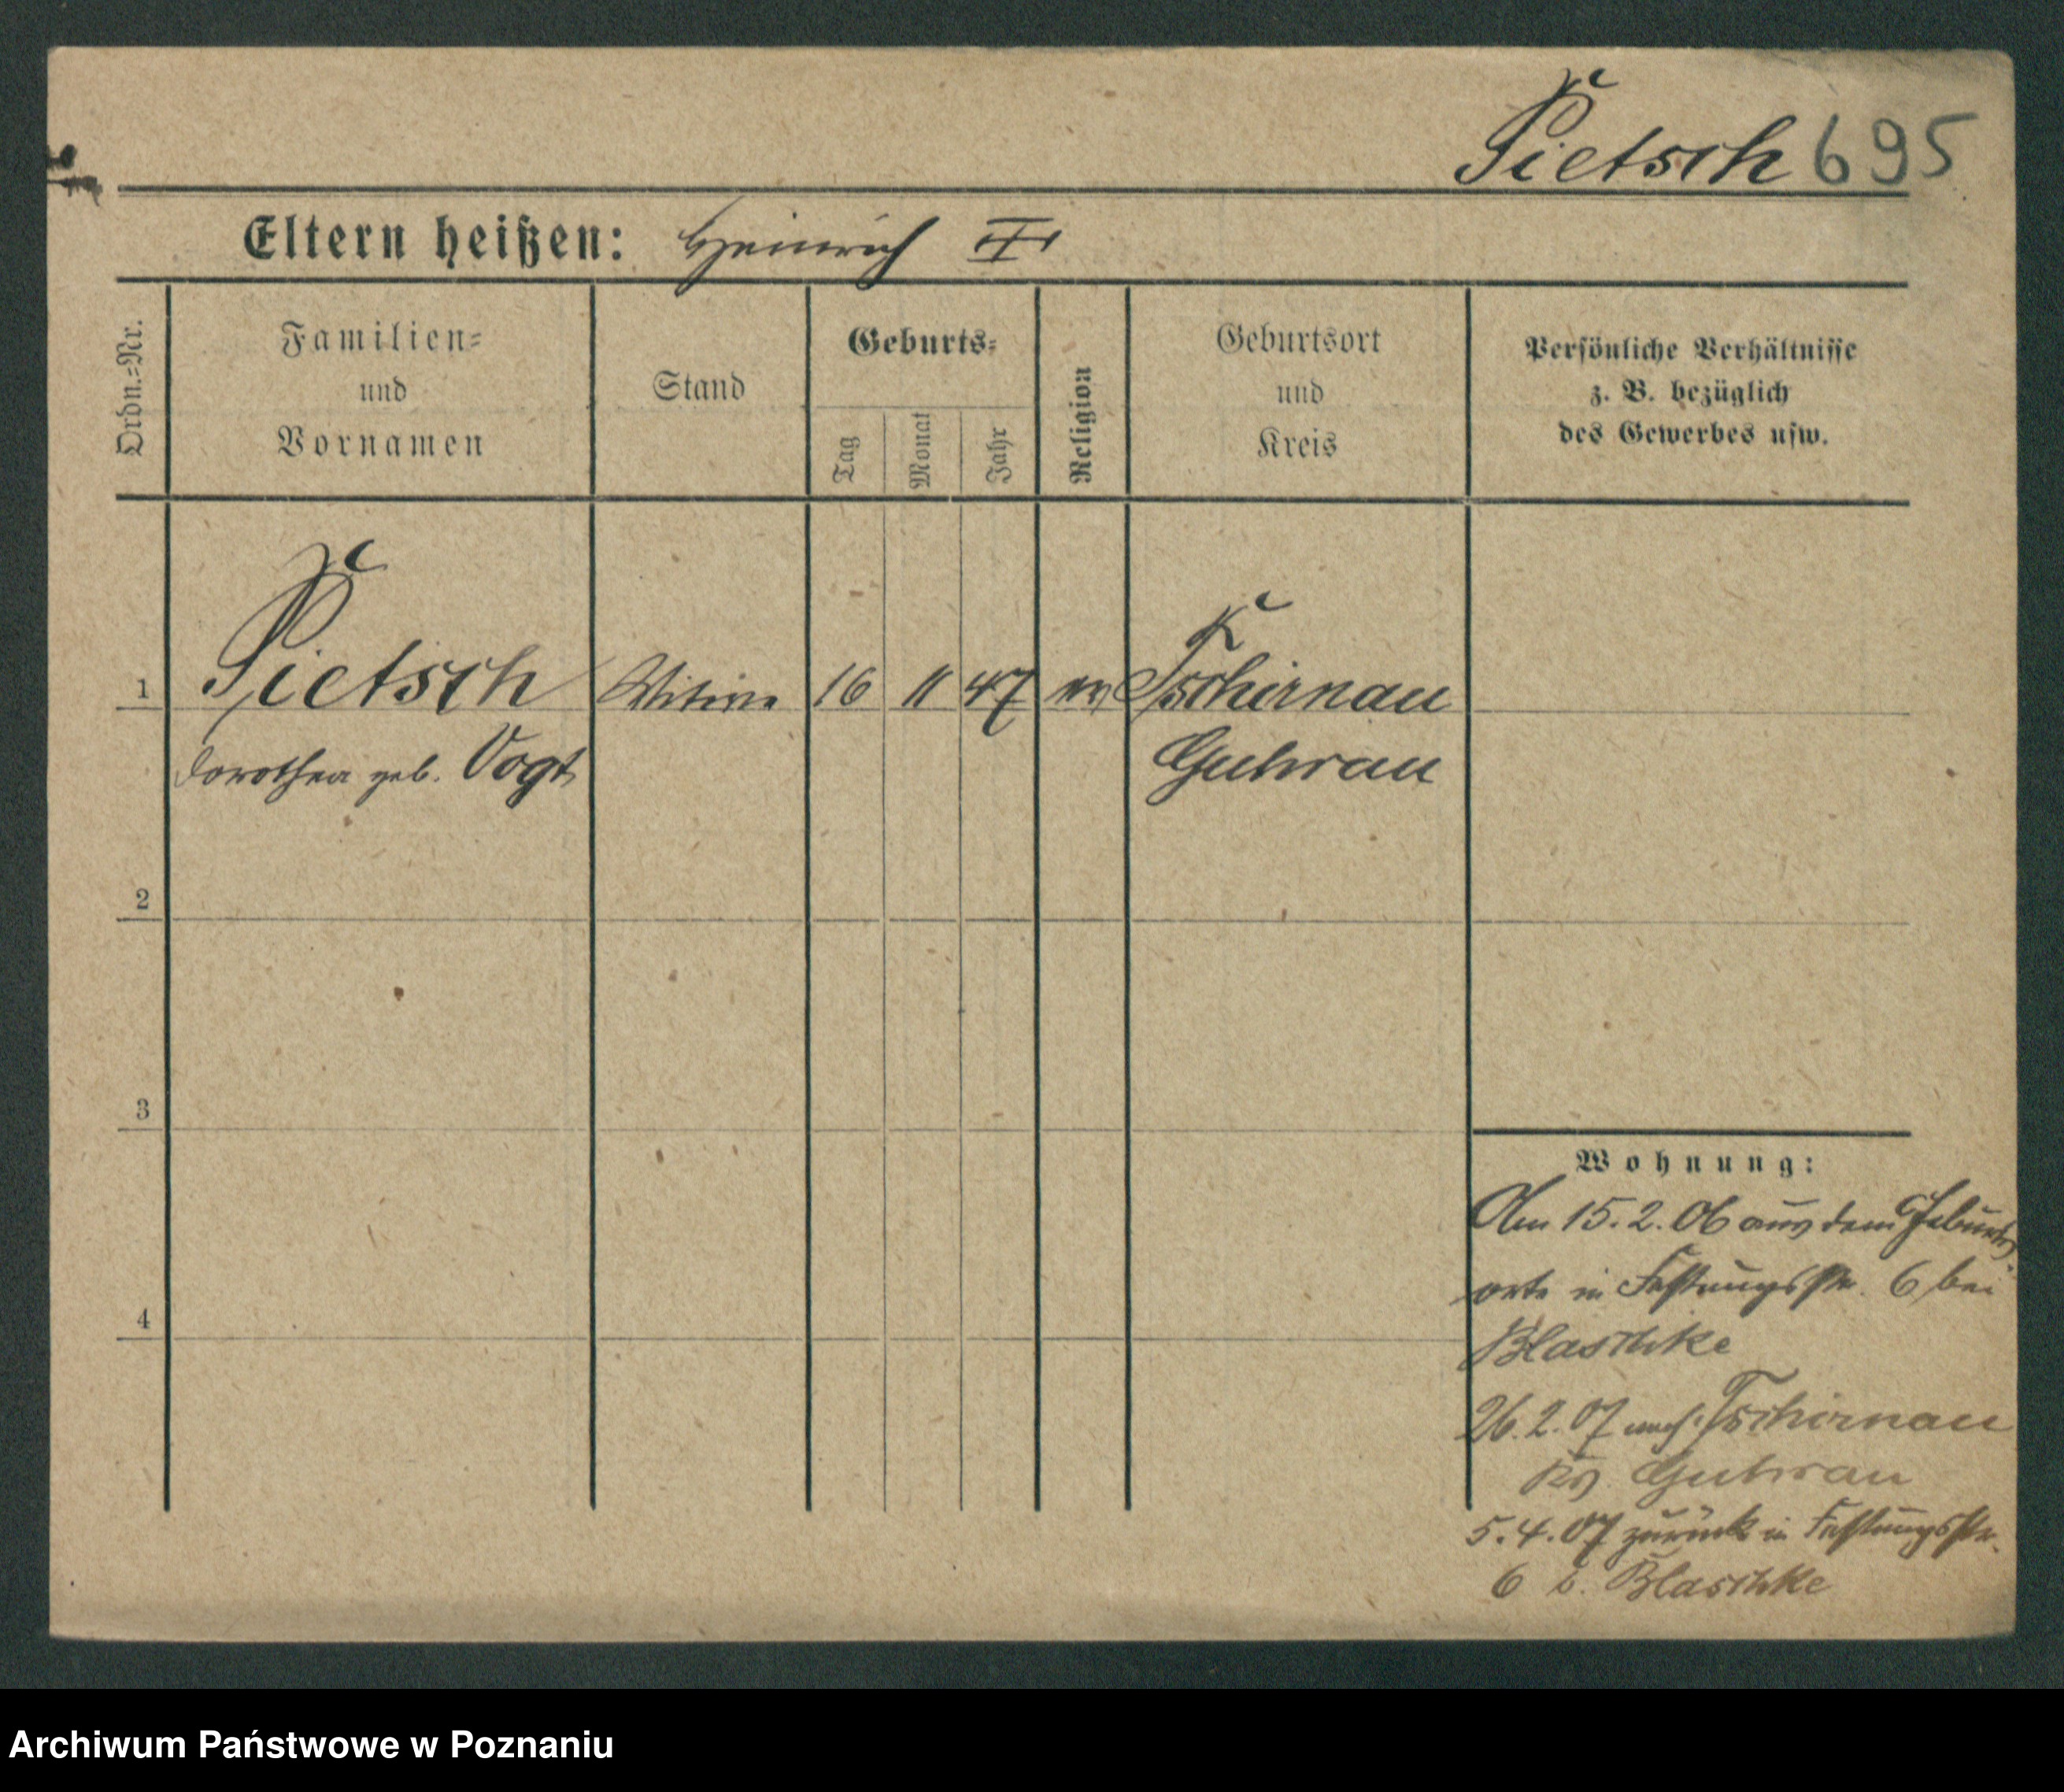 Pietsch 695
Eltern heißen: Heinrich
Ordn.-Nr.
Familien-
und
Vornamen
Stand
Geburts-
Tag
Monat
Jahr
Religion
Geburtsort
und
Kreis
Persönliche Verhältnisse
z. B. bezüglich
des Gewerbes usw.
1 Pietsch Witwe 16 11 47 ev Tschirnau
Dorothea geb. Vogt Guhrau
2
3
4
Wohnung:
Am 15.2.06 aus dem Geburts-
orte in Festungsstr. 6 bei
Blaschke
26.2.07 nach Tschirnau
Krs Guhrau
5.4.07 zurück in Festungsstr.
6 b. Blaschke
Archiwum Państwowe w Poznaniu